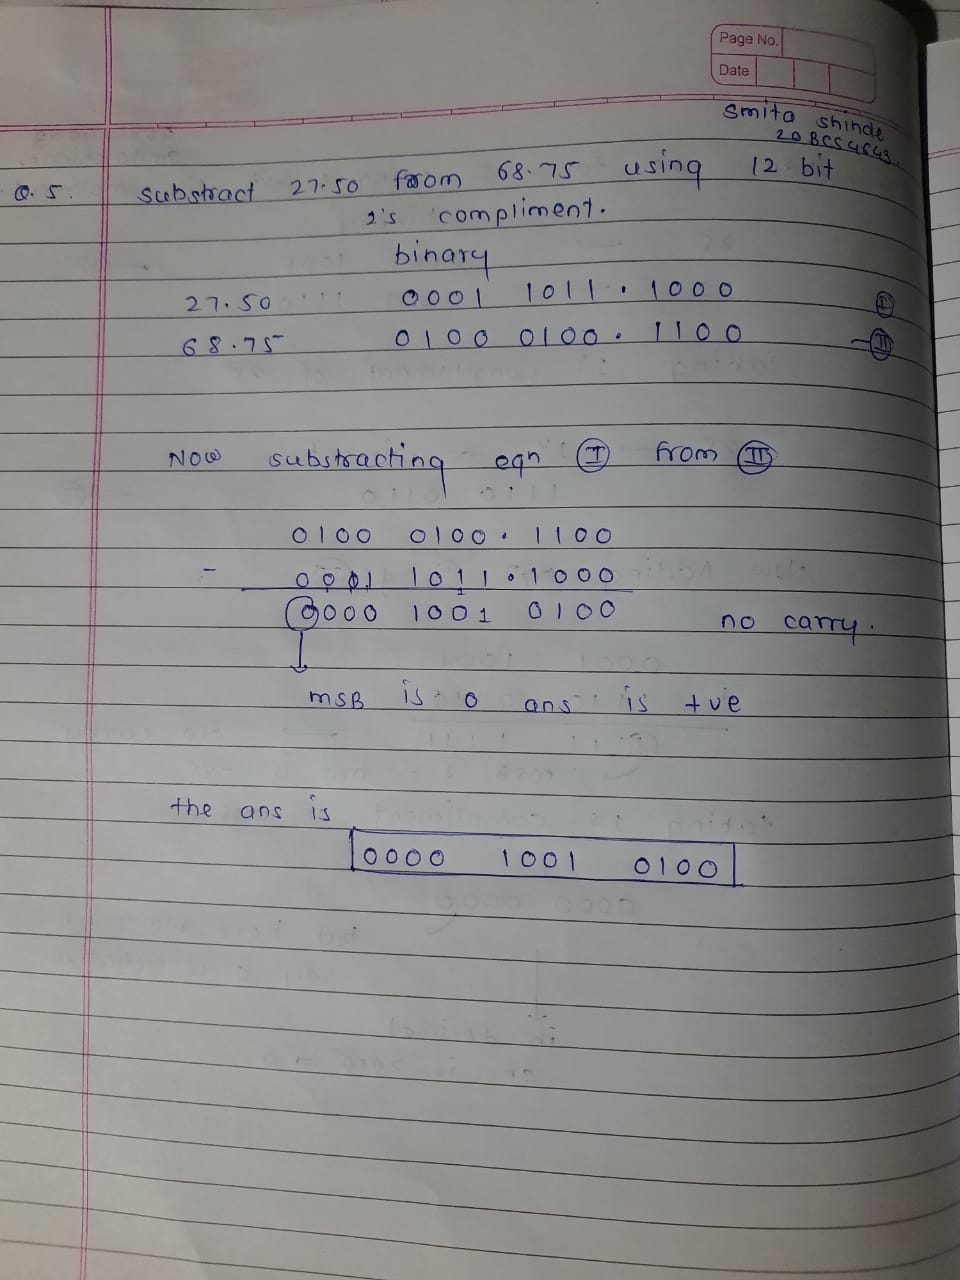 Page No.
Date
Smita Shinde
20BCS4543.
Q. 5. substract 27.50 from 68.75 using 12 bit
2's compliment.
binary
27.50 0001 1011 . 1000 I
68.75 0100 0100 . 1100 - II
Now substracting eqn I from II
0100 0100 . 1100
- 0001 1011 . 1000
0000 1001 0100 no carry.
MSB is 0 ans is +ve
the ans is
0000 1001 0100